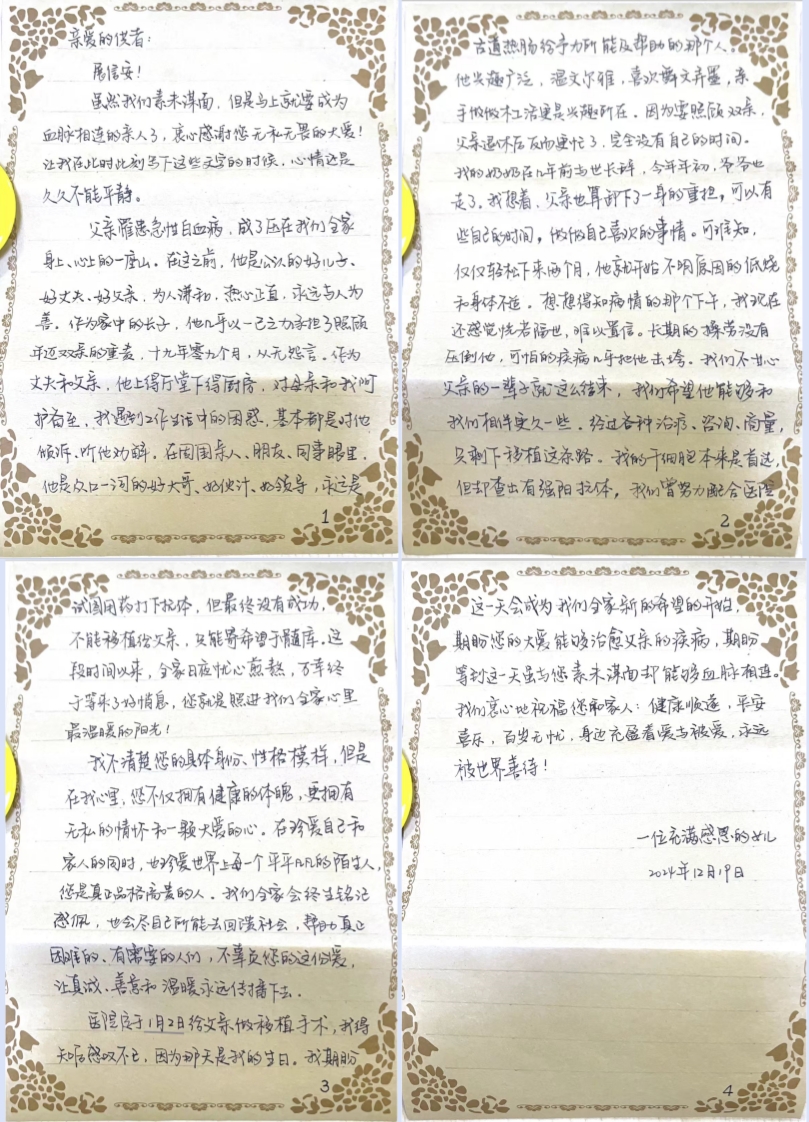 亲爱的供者：
展信安！
虽然我们素未谋面，但是马上就要成为
血脉相连的亲人了，衷心感谢您无私无畏的大爱！
让我在此时此刻写下这些文字的时候，心情还是
久久不能平静。
父亲罹患急性白血病，成了压在我们全家
身上、心上的一座山。在这之前，他是公认的好儿子、
好丈夫、好父亲，为人谦和，热心正直，永远与人为
善。作为家中的长子，他几乎以一己之力承担了照顾
年迈双亲的重责，十九年零九个月，从无怨言。作为
丈夫和父亲，他上得厅堂下得厨房，对母亲和我呵
护备至，我遇到工作生活中的困惑，基本都是对他
倾诉、听他劝解。在周围亲人、朋友、同事眼里，
他是众口一词的好大哥、好伙计、好领导，永远是
1
古道热肠给予力所能及帮助的那个人。
他兴趣广泛，温文尔雅，喜欢舞文弄墨，亲
手做做木工活更是兴趣所在。因为要照顾双亲，
父亲退休后反而更忙了，完全没有自己的时间。
我的奶奶在几年前与世长辞，今年年初，爷爷也
走了。我想着，父亲也算卸下了一身的重担，可以有
些自己的时间，做做自己喜欢的事情。可谁知，
仅仅轻松下来两个月，他就开始不明原因的低烧
和身体不适。想想得知病情的那个下午，我现在
还感觉恍若隔世，难以置信。长期的操劳没有
压倒他，可怕的疾病几乎把他击垮。我们不甘心
父亲的一辈子就这么结束，我们希望他能够和
我们相伴更久一些。经过各种治疗、咨询、商量，
只剩下移植这条路。我的干细胞本来是首选，
但却查出有强阳抗体，我们曾努力配合医院
2
试图用药打下抗体，但最终没有成功，
不能移植给父亲，只能寄希望于髓库。这
段时间以来，全家日夜忧心煎熬，万幸终
于等来了好消息，您就是照进我们全家心里
最温暖的阳光！
我不清楚您的具体身份、性格模样，但是
在我心里，您不仅拥有健康的体魄，更拥有
无私的情怀和一颗大爱的心。在珍爱自己和
家人的同时，也珍爱世界上每一个平平凡凡的陌生人，
您是真正品格高贵的人。我们全家会终生铭记
感佩，也会尽自己所能去回馈社会，帮助真正
困难的、有需要的人们，不辜负您的这份爱，
让真诚、善意和温暖永远传播下去。
医院定于1月2日给父亲做移植手术，我得
知后感叹不已，因为那天是我的生日。我期盼
3
这一天会成为我们全家新的希望的开始，
期盼您的大爱能够治愈父亲的疾病，期盼
等到这一天虽与您素未谋面却能够血脉相连。
我们衷心地祝福您和家人：健康顺遂，平安
喜乐，百岁无忧，身边充盈着爱与被爱，永远
被世界善待！
一位充满感恩的女儿
2024年12月19日
4